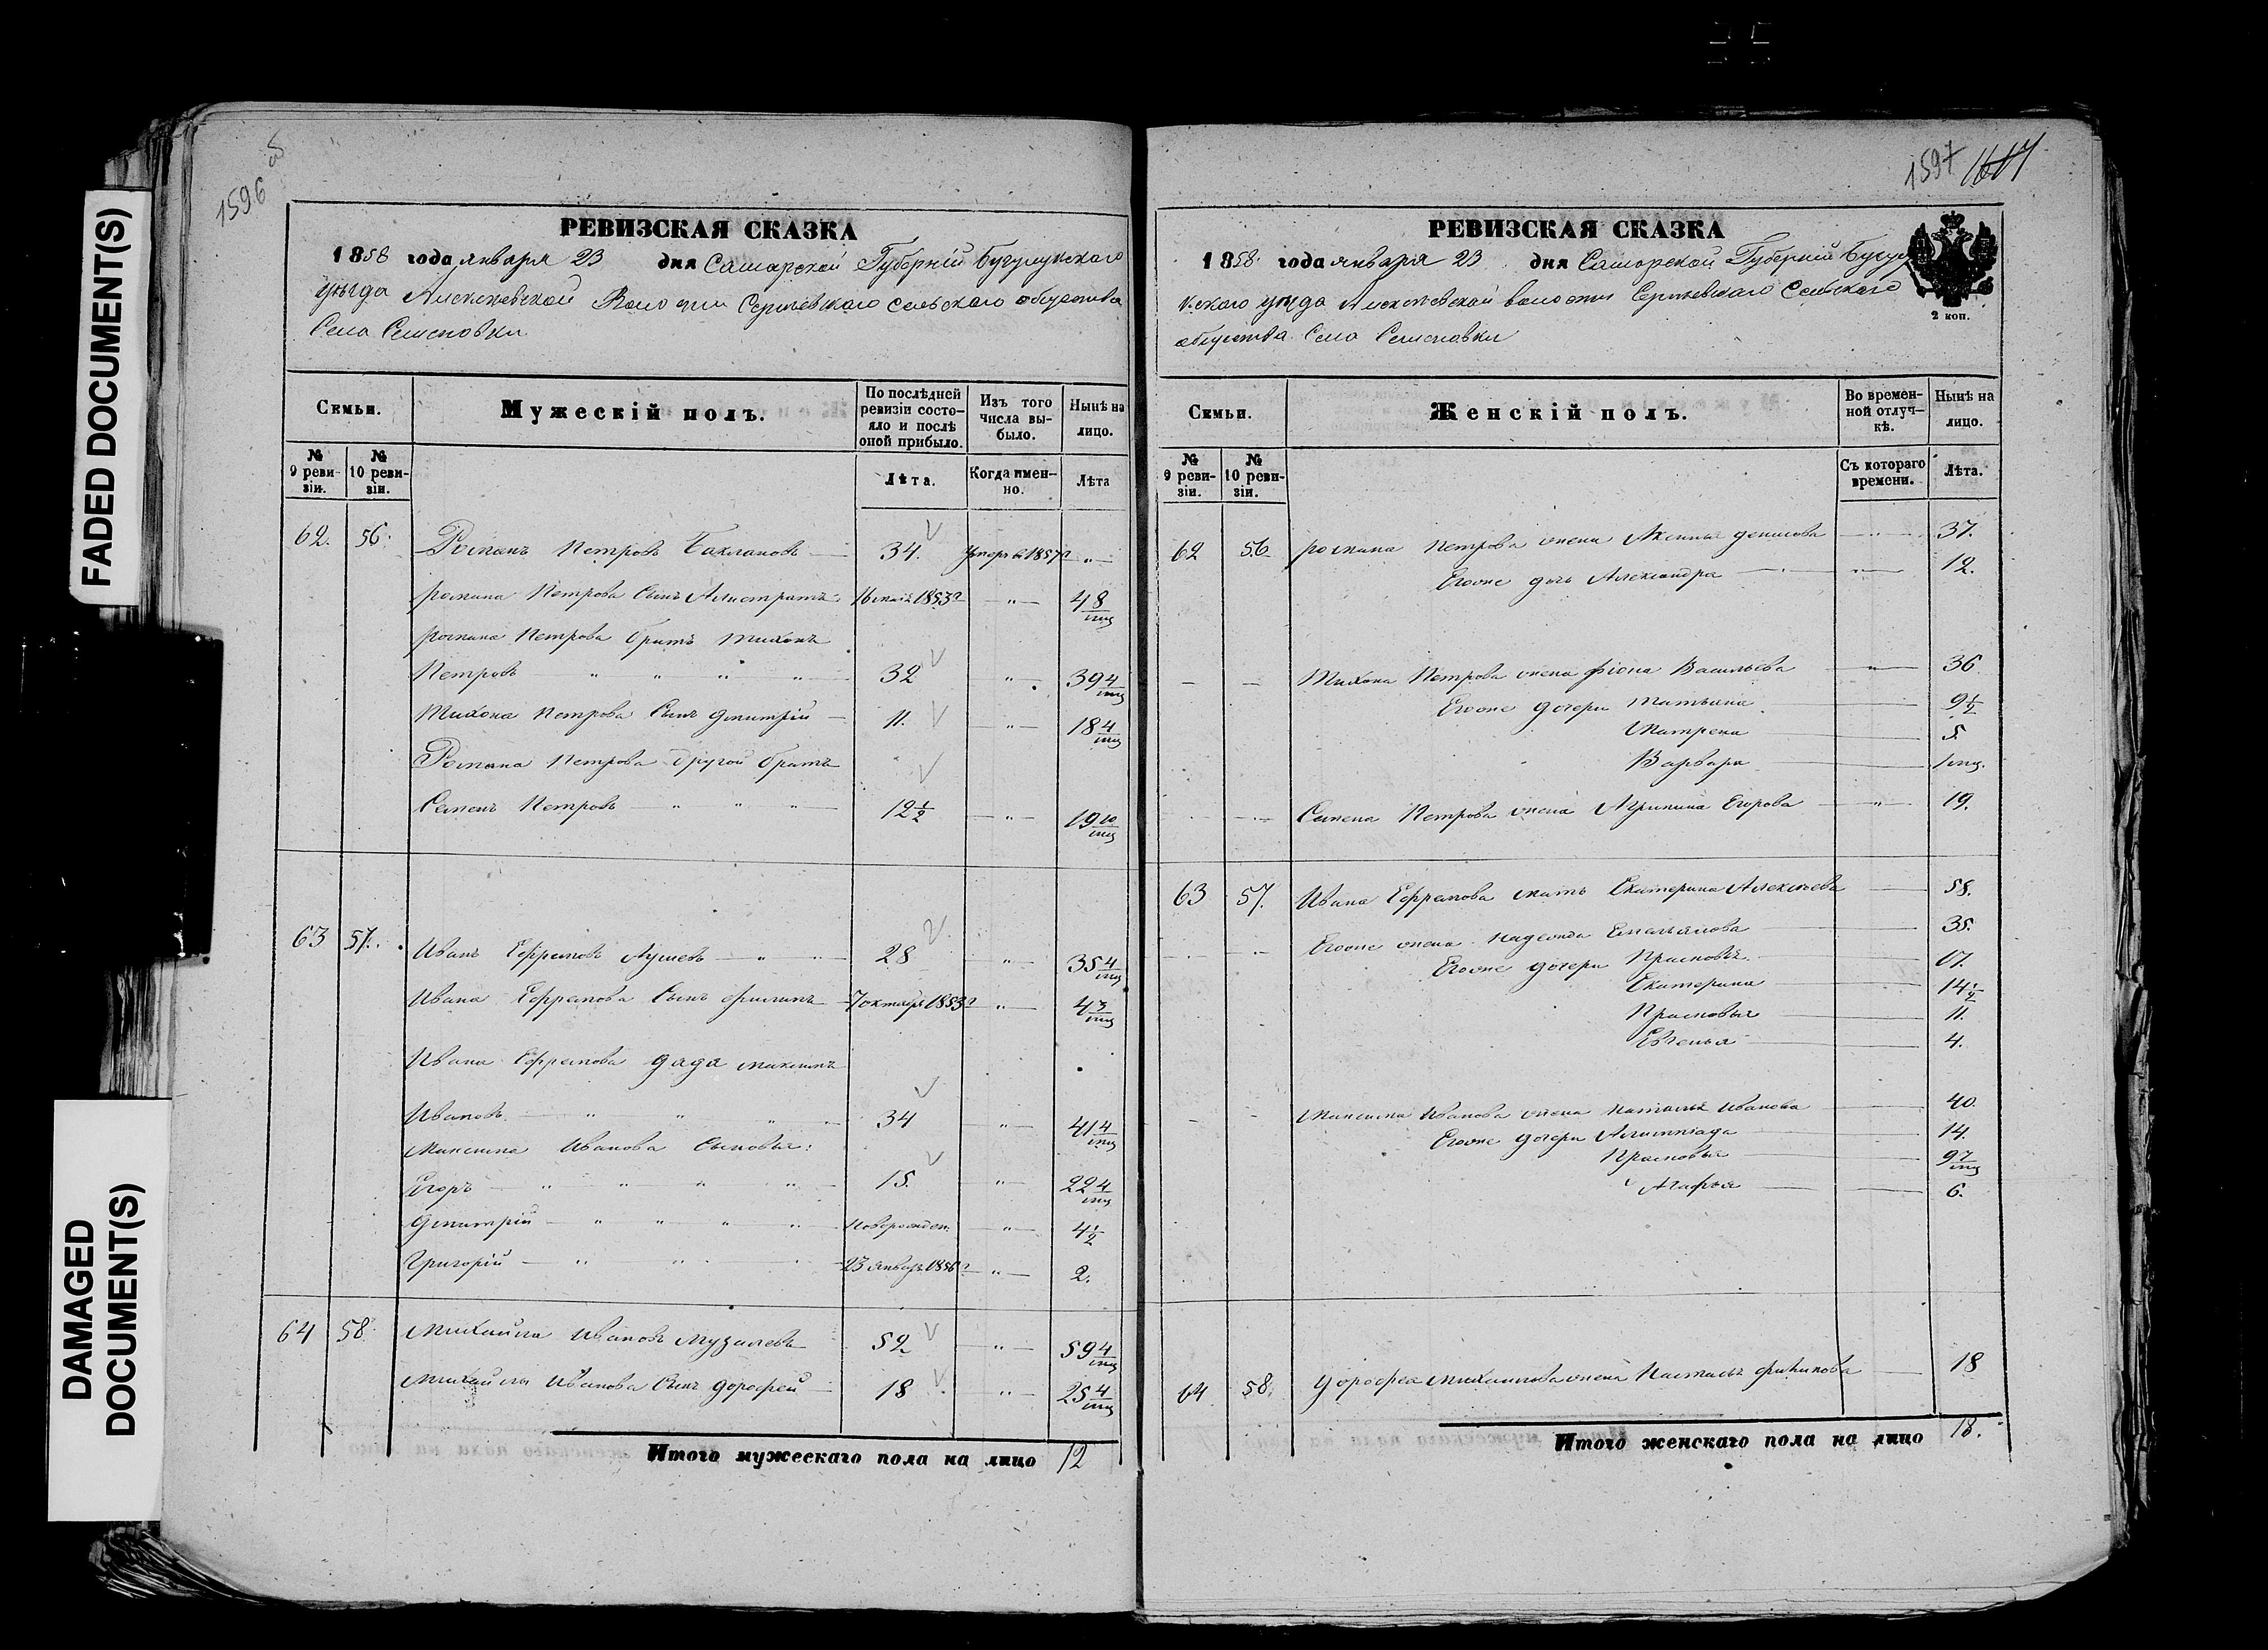 FADED DOCUMENT(S)
DAMAGED
DOCUMENT(S)
1596 об
РЕВИЗСКАЯ СКАЗКА
1858 года января 23 дня Самарской Губерніи Бугурусланскаго
уѣзда Алексѣевской Волости Сергіевскаго сельскаго общества
Села Семеновки
Семьи.
Мужескій полъ.
По послѣдней ревизіи состояло и послѣ оной прибыло.
Изъ того числа выбыло.
Нынѣ на лицо.
№ 9 ревизіи.
№ 10 ревизіи.
Лѣта.
Когда именно.
Лѣта
62. 56. Романъ Петровъ Баклановъ 34. умеръ въ 1857 г „
Романа Петрова Сынъ 16 мая 1853 г „ 4 8/мц
Романа Петрова братъ Тихонъ
Петровъ „ „ „ „ 32 „ 39 4/мц
Тихона Петрова Сынъ Дмитрій 11. „ 18 4/мц
Романа Петрова другой братъ
Семенъ Петровъ „ „ „ 12 1/2 „ 19 10/мц
63 57. Иванъ Ефремовъ „ 28 „ 35 4/мц
Ивана Ефремова Сынъ Филипъ 7 октября 1853 г „ 4 3/мц
Ивана Ефремова дядя Максимъ
Ивановъ „ „ „ 34 „ 41 4/мц
Максима Иванова Сыновья:
Егоръ „ „ „ „ 15. „ 22 4/мц
Дмитрій „ „ „ „ новорожден. „ 4 1/2
Григорій „ „ „ 23 январ. 1856 г „ 2.
64 58. Михайла Ивановъ 52 „ 59 4/мц
Михайлы Иванова Сынъ Дорофей 18 „ 25 4/мц
Итого мужескаго пола на лицо 12
1597
РЕВИЗСКАЯ СКАЗКА
1858 года января 23 дня Самарской Губерніи Бугурусла
нскаго уѣзда Алексѣевской волости Сергіевскаго Сельскаго
общества Села Семеновки
2 коп.
Семьи.
Женскій полъ.
Во временной отлучкѣ.
Нынѣ на лицо.
№ 9 ревизіи.
№ 10 ревизіи.
Съ котораго времени.
Лѣта.
62 56 Романа Петрова жена Аксинья Денисова „ 37.
Егоже дочь Александра „ 12.
Тихона Петрова жена Фіона Васильева „ 36
Егоже дочери Татьяна 9 1/2
Матрена 5.
Варвара 1 мц.
Семена Петрова жена Агрипина Егорова „ 19.
63 57. Ивана Ефремова мать Екатерина Алексѣева 58.
Егоже жена Надежда Емельянова 35.
Егоже дочери Прасковья 17.
Екатерина 14 1/2
Прасковья 11.
Евгенья 4.
Максима Иванова жена Наталья Иванова 40.
Егоже дочери Алимпіада 14.
Прасковья 9 7/мц
Агафья 6.
64 58. Дорофея Михайлова жена Настасья 18
Итого женскаго пола на лицо 18.